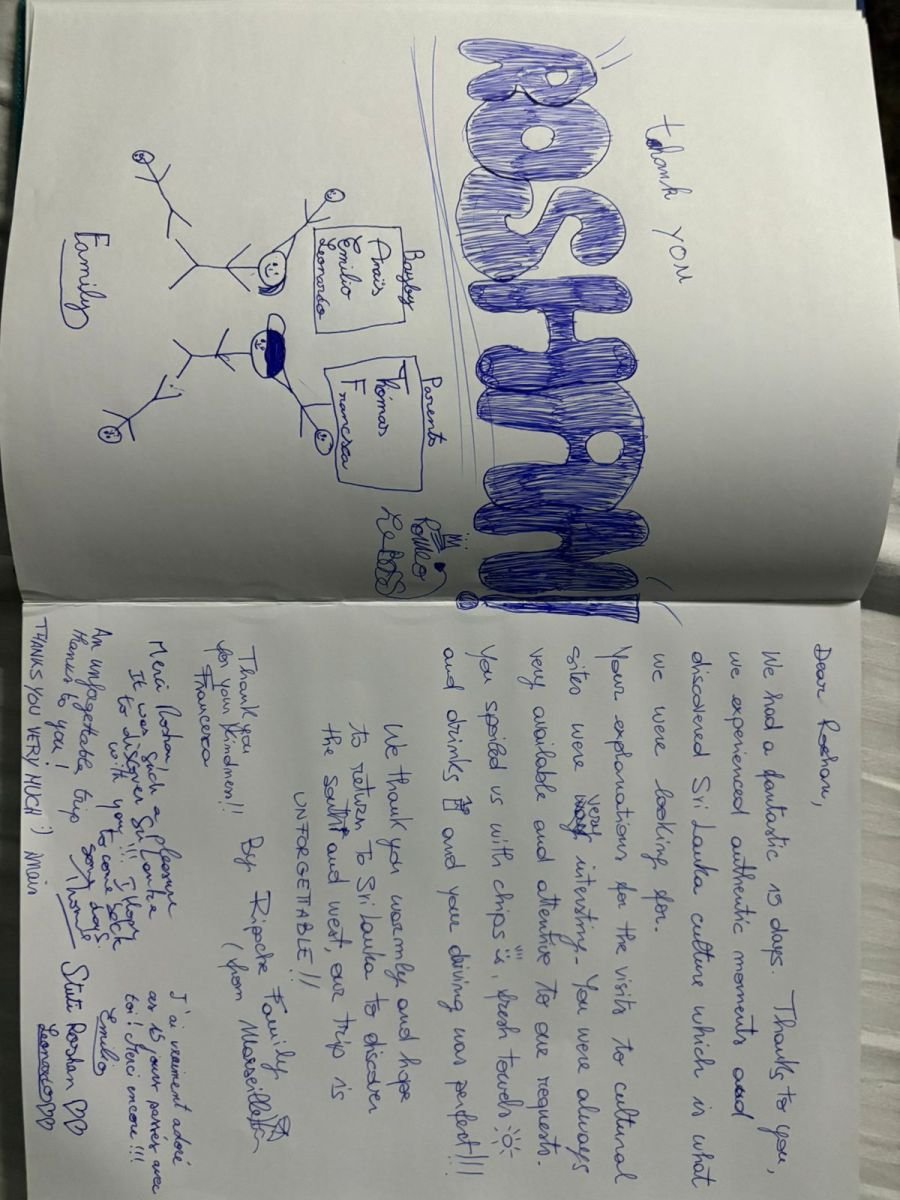 thank you
ROSHAN!
Bayby
Anaïs
Emilio
Leonardo
Parents
Thomas
Francesca
Romeo
Le BOSS
Family
Dear Roshan,
We had a fantastic 15 days. Thanks to you,
we experienced authentic moments and
discovered Sri Lanka culture which is what
we were looking for.
Your explanations for the visits to cultural
sites were very intersting. You were always
very available and attentive to our requests.
You spoiled us with chips, fresh towels
and drinks and your driving was perfect!!!
We thank you warmly and hope
to return to Sri Lanka to discover
the south and west, our trip is
UNFORGETTABLE!!
By Ripoche Family
(from Marseille)
Thank you
for your kindness!!
Francesca
Merci Roshan,
It was such a pleasure
to discover Sri Lanka
with you!!! I hope
to come back
some days
Thomas
An unforgettable trip
thanks to you!
THANKS YOU VERY MUCH :) Anaïs
J'ai vraiment adoré
ces 15 jours passés avec
toi! Merci encore!!!
Emilio
Stuti Roshan ♡♡
Leonardo♡♡